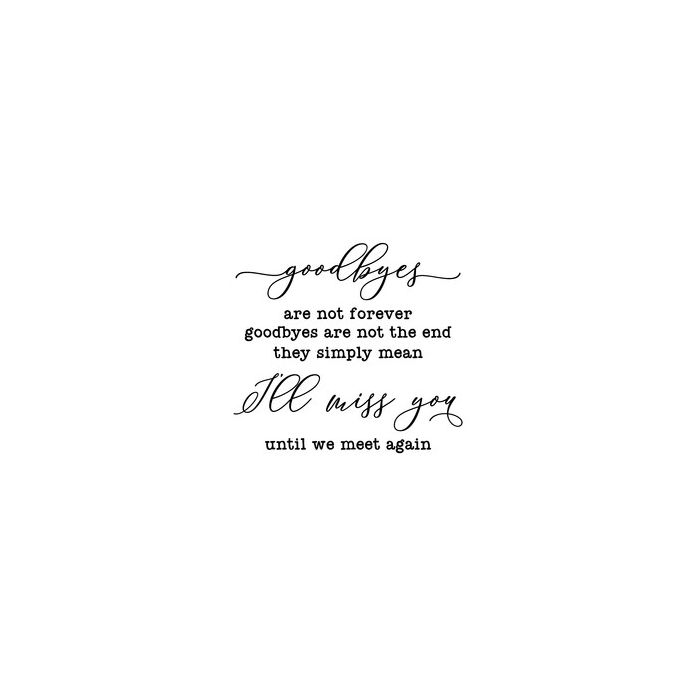 goodbyes
are not forever
goodbyes are not the end
they simply mean
I'll miss you
until we meet again